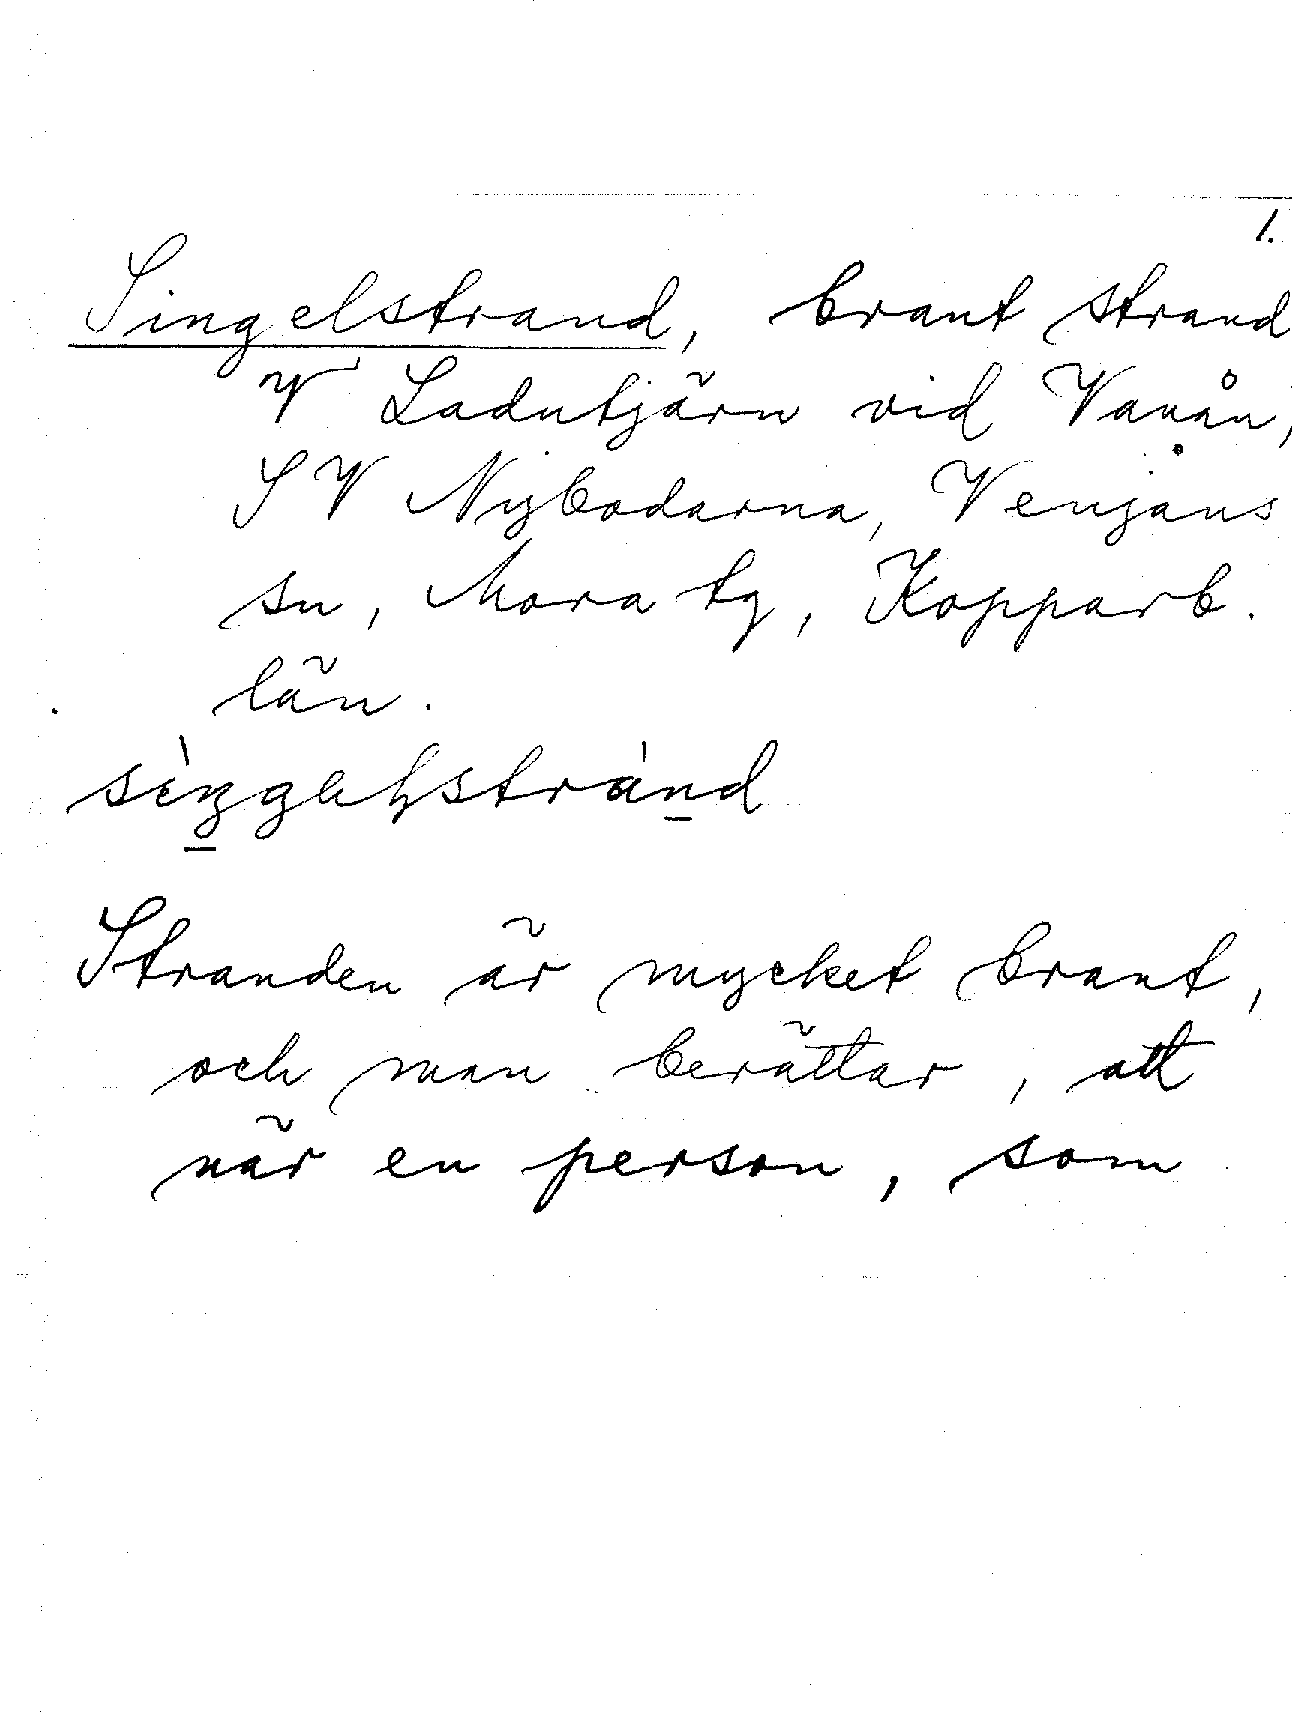 1.
Singelstrand, brant strand
V Ladutjärn vid Vanån,
SV Nybodarna, Venjans
sn, Mora tg, Kopparb.
län.
Stranden är mycket brant,
och man berättar, att
när en person, som